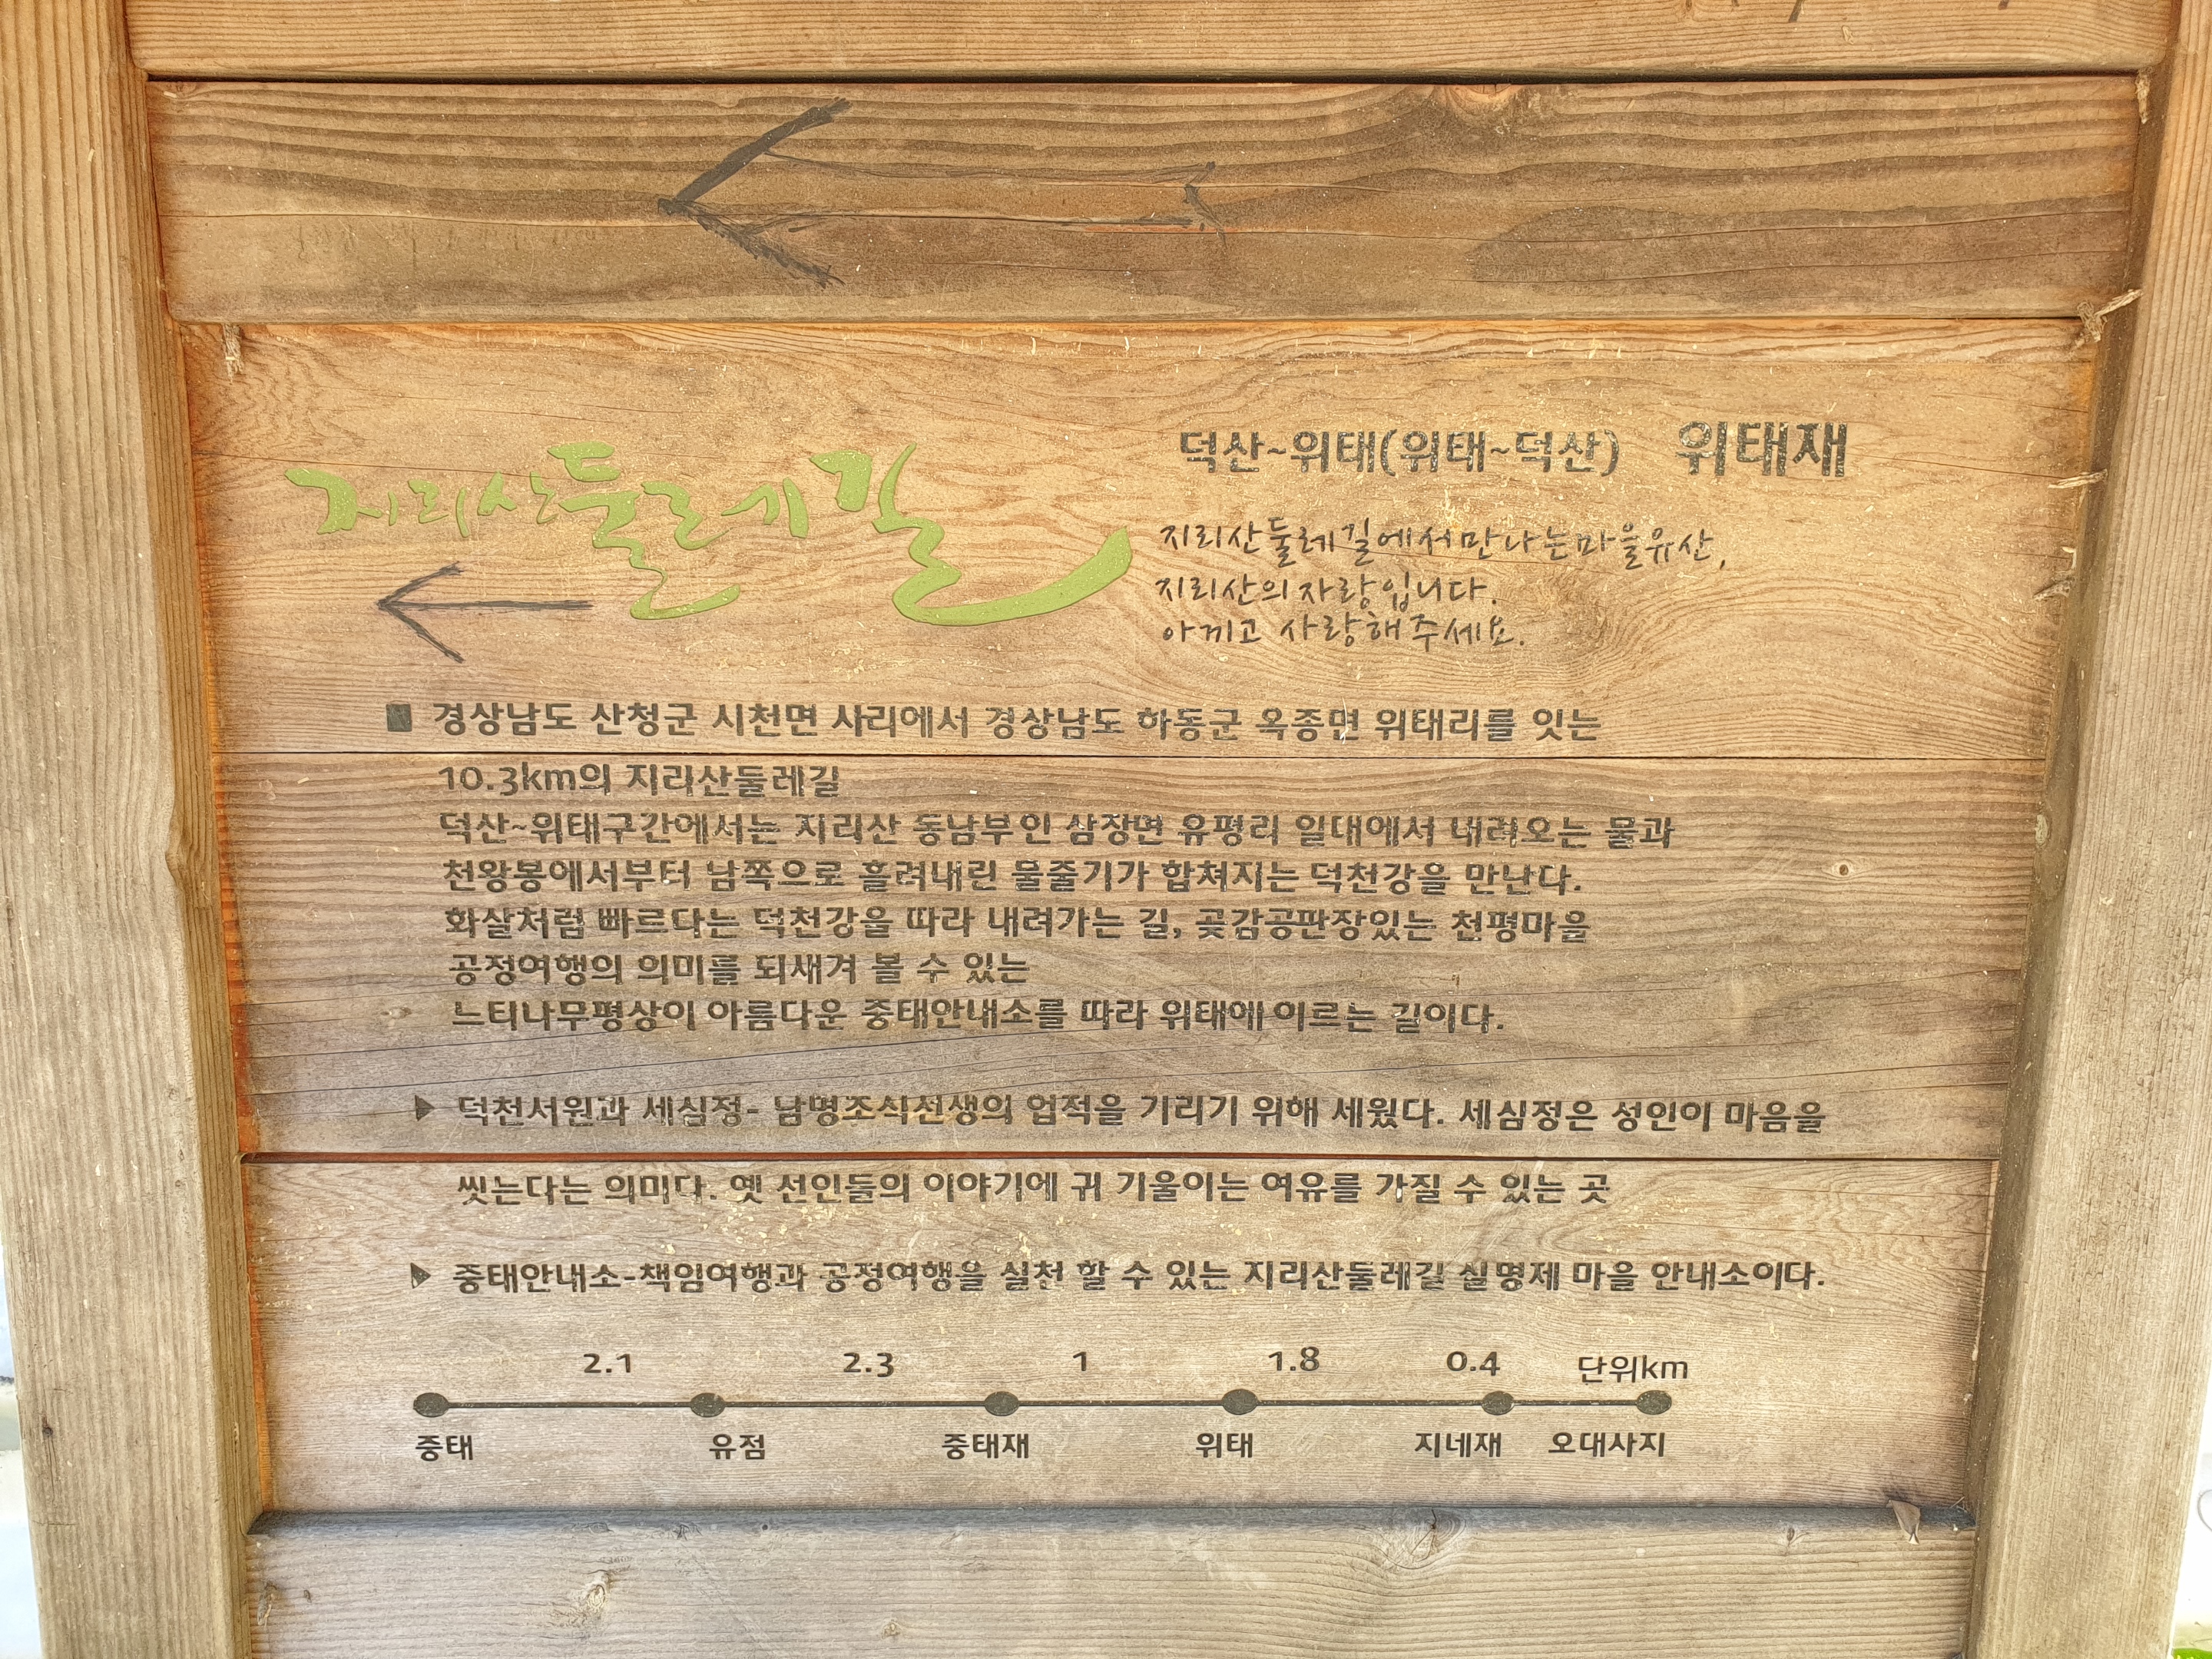 지리산둘레길
덕산~위태(위태~덕산) 위태재
지리산둘레길에서 만나는 마을유산,
지리산의 자랑입니다.
아끼고 사랑해주세요.
■ 경상남도 산청군 시천면 사리에서 경상남도 하동군 옥종면 위태리를 잇는
10.3km의 지리산둘레길
덕산~위태구간에서는 지리산 동남부인 삼장면 유평리 일대에서 내려오는 물과
천왕봉에서부터 남쪽으로 흘려내린 물줄기가 합쳐지는 덕천강을 만난다.
화살처럼 빠르다는 덕천강을 따라 내려가는 길, 곶감공판장있는 천평마을
공정여행의 의미를 되새겨 볼 수 있는
느티나무평상이 아름다운 중태안내소를 따라 위태에 이르는 길이다.
▶ 덕천서원과 세심정- 남명조식선생의 업적을 기리기 위해 세웠다. 세심정은 성인이 마음을
씻는다는 의미다. 옛 선인들의 이야기에 귀 기울이는 여유를 가질 수 있는 곳
▶ 중태안내소-책임여행과 공정여행을 실천 할 수 있는 지리산둘레길 실명제 마을 안내소이다.
2.1 2.3 1 1.8 0.4 단위km
중태 유점 중태재 위태 지네재 오대사지